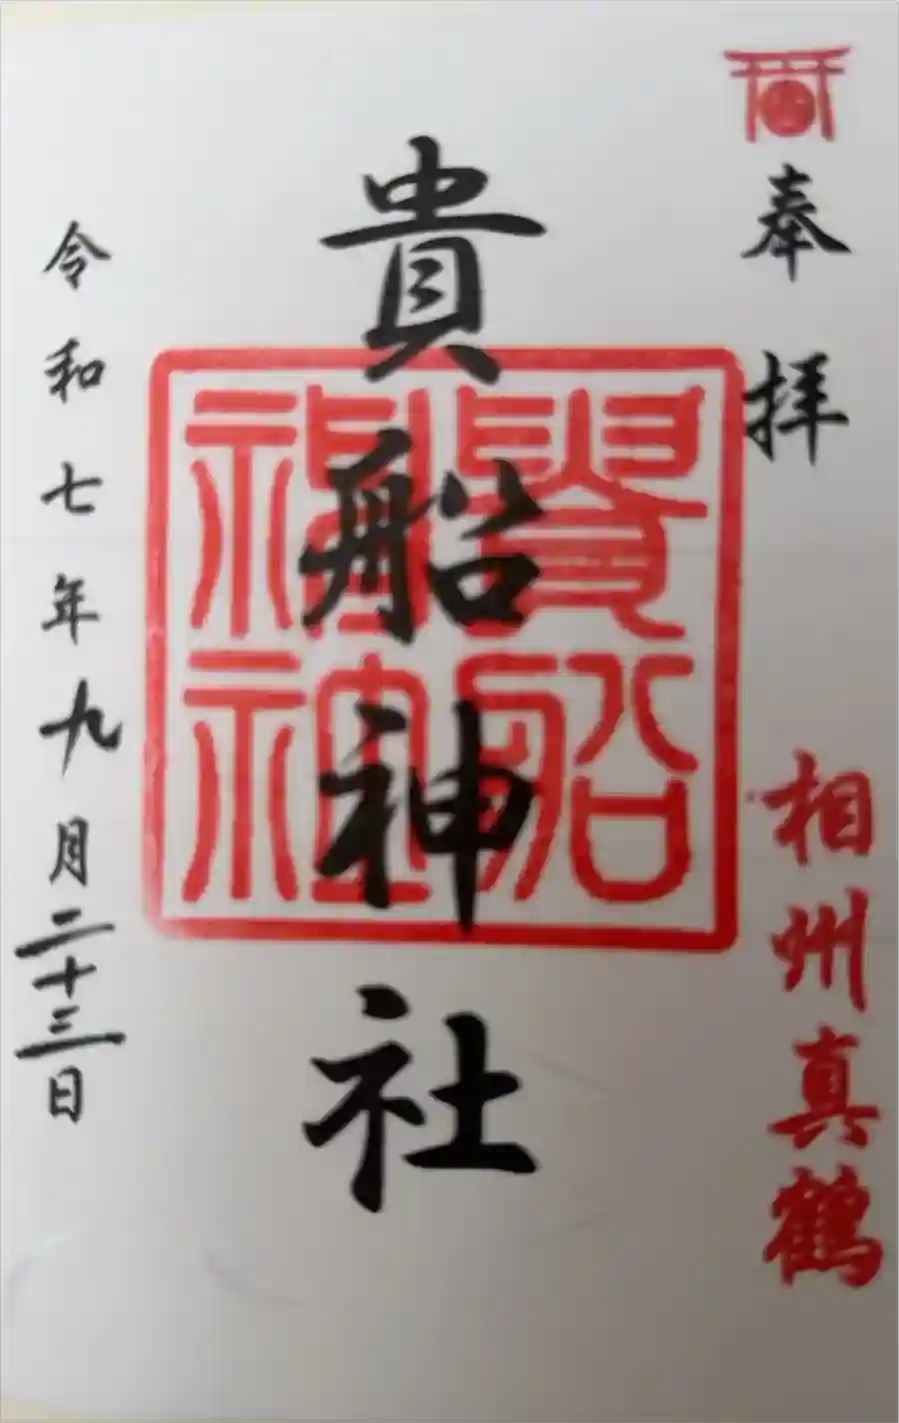 奉拝
相州真鶴
貴船神社
貴船神社
令和七年九月二十三日